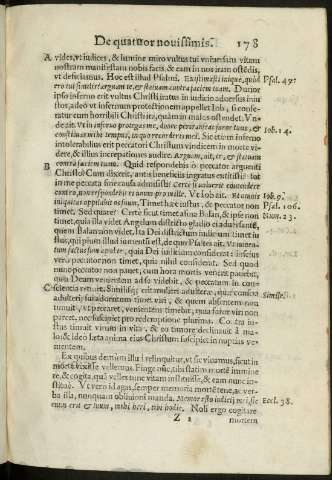 De quatuor nouissimis. 178
A vides, vt iudices, & lumine miro vultus tui vniuersam vitam
nostram manifestam nobis facis, & eam in nos iram ostẽdis,
vt deficiamus. Hoc est illud Psalmi. Existimasti inique, quòd Psal. 49.
ero tui similis: arguam te, & statuam contra faciem tuam. Durior
ipso inferno erit vultus Christi iratus in iudicio aduersus iniu
stos, adeò vt infernum protectionem appellet Iob, si confe-
ratur cum horribili Christi ira, quàm in malos ostendet. Vn-
de ait. vt in inferno protegas me, donec pertranseat furor tuus, et
constituas mihi tempus, in quo recorderis mei. Sic etiam inferno Iob. 14.
intolerabilius erit peccatori Christum vindicem in morte vi
dere, & illum increpationes audire. Arguam, ait, te, & statuam
B contra faciem tuam. Quid respondebis ô peccator arguenti
Christo? Cum dixerit, antis beneficijs ingratus extitisti: tot
in me peccata fœnda admisisti? Certe si voluerit contendere
contra, non respondebis ei vnum pro mille. Vt Iob ait. Et omnis Iob. 9.
iniquitas oppilabit os suum. Timet hæc iustus, & peccator non Psal. 106.
timet. Sed quare? Certè sicut timet asina Balan, & ipse non Num. 23.
timet, quia illa videt Angelum districto gladio ei aduersantẽ,
quem Balam non videt. Ita Dei districtum iudicium timet iu
stus, qui pium illud
quia Dei iudicium considerat: impius
verò peccator non timet, quia nihil considerat. Sed quod
nunc peccator non pauet, cum hora mortis venerit pauebit,
quia Deum venientem ad se videbit, & peccatum in con-
C scientia remittet. Similis est mulieri adulteræ, quæ conscia Simile.
adulterij sui adoritum timet viri, & quem absentem non
timuit, vt peccaret, venientem timebit, quia furor viri non
parcet, nec suscipiet pro redemptione plurima. Contra iu-
stus timuit virum in vita, & eo timore declinauit à ma-
lo; & ideo læta anima eius Christum suscipiet in nuptias ve-
nientem.
Ex quibus demũm illud relinquitur, vt sic viuamus, sicut in
morte vixisse vellemus. Finge ergo, tibi statim mortẽ immine
re, & cogita, quã velles tunc vitam instituisse, & eam nunc in-
stitue. Vt vero id agas, semper memoria mortẽ tene, ac ver-
ba illa, nunquam obliuioni manda. Memor esto iudicij mei, sic Eccl. 38.
enim erit & tuum, mihi heri, tibi hodie. Noli ergo cogitare
Z 2 mortem